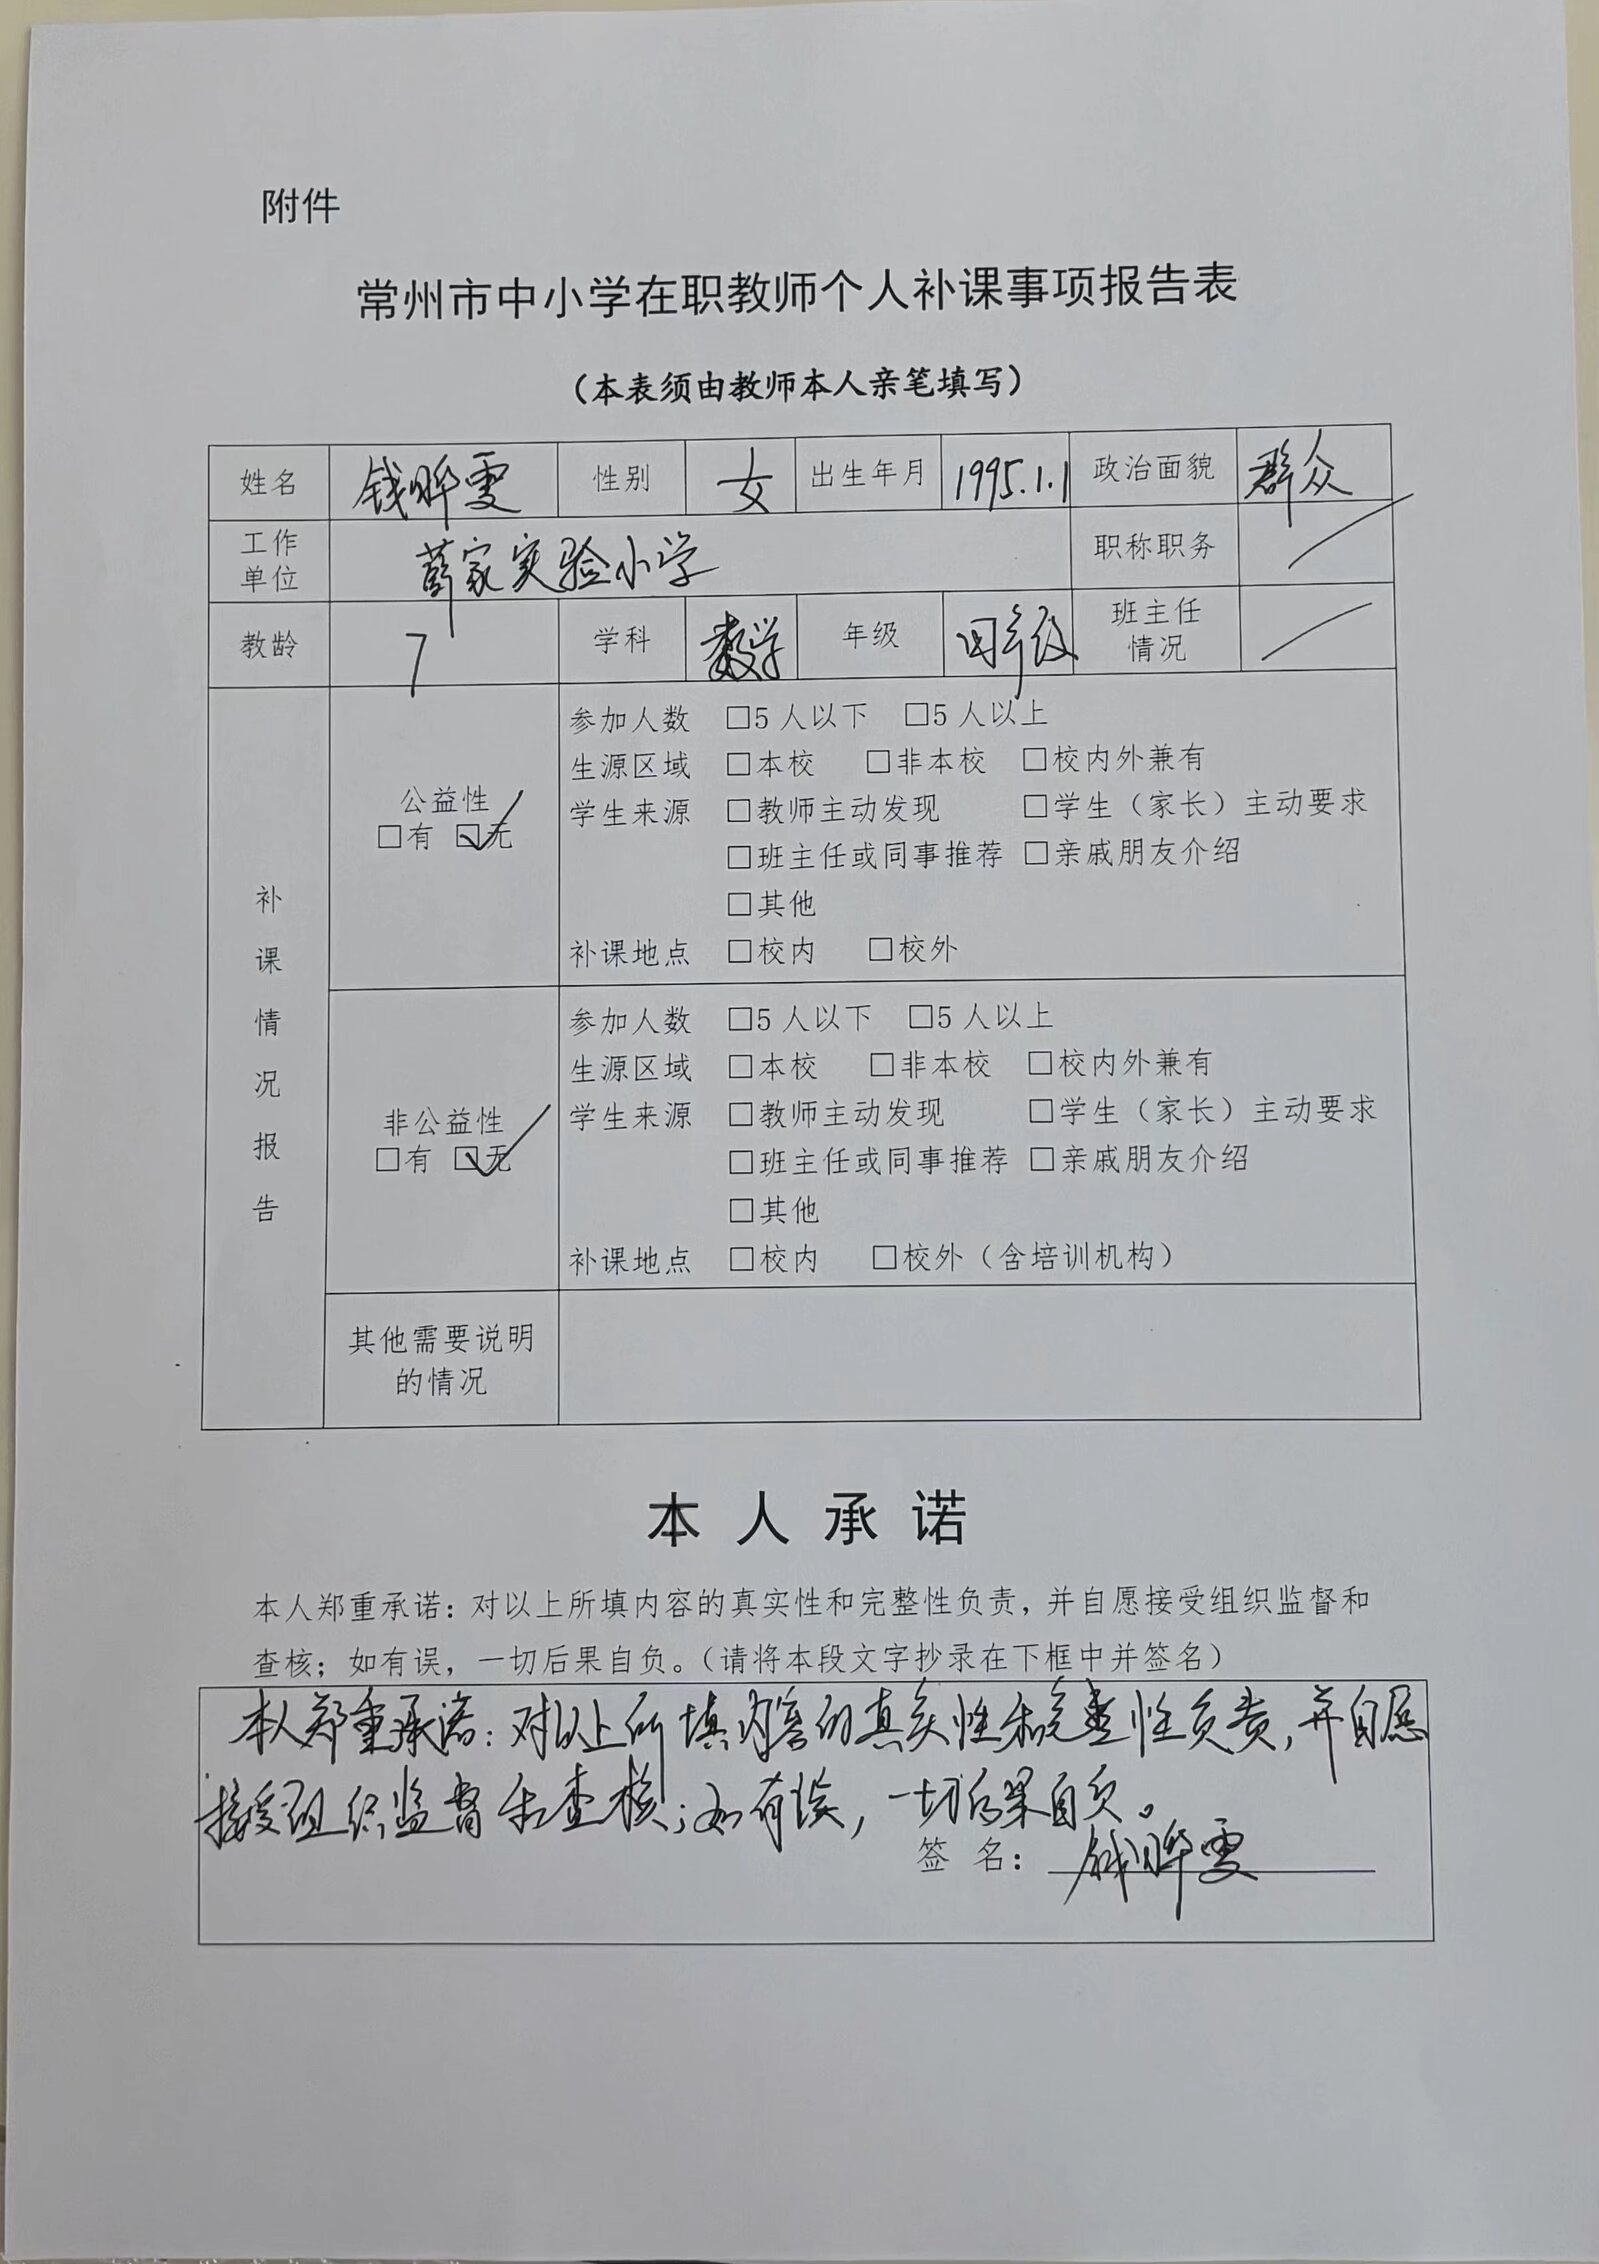 附件
常州市中小学在职教师个人补课事项报告表
（本表须由教师本人亲笔填写）
姓名 钱晔雯 性别 女 出生年月 1995.1.1 政治面貌 群众
工作单位 薛家实验小学 职称职务 /
教龄 7 学科 数学 年级 四年级 班主任情况 /
补课情况报告
公益性
□有 ☑无
参加人数 □5人以下 □5人以上
生源区域 □本校 □非本校 □校内外兼有
学生来源 □教师主动发现 □学生（家长）主动要求
□班主任或同事推荐 □亲戚朋友介绍
□其他
补课地点 □校内 □校外
非公益性
□有 ☑无
参加人数 □5人以下 □5人以上
生源区域 □本校 □非本校 □校内外兼有
学生来源 □教师主动发现 □学生（家长）主动要求
□班主任或同事推荐 □亲戚朋友介绍
□其他
补课地点 □校内 □校外（含培训机构）
其他需要说明
的情况
本人承诺
本人郑重承诺：对以上所填内容的真实性和完整性负责，并自愿接受组织监督和
查核；如有误，一切后果自负。（请将本段文字抄录在下框中并签名）
本人郑重承诺：对以上所填内容的真实性和完整性负责，并自愿
接受组织监督和查核；如有误，一切后果自负。
签 名：钱晔雯